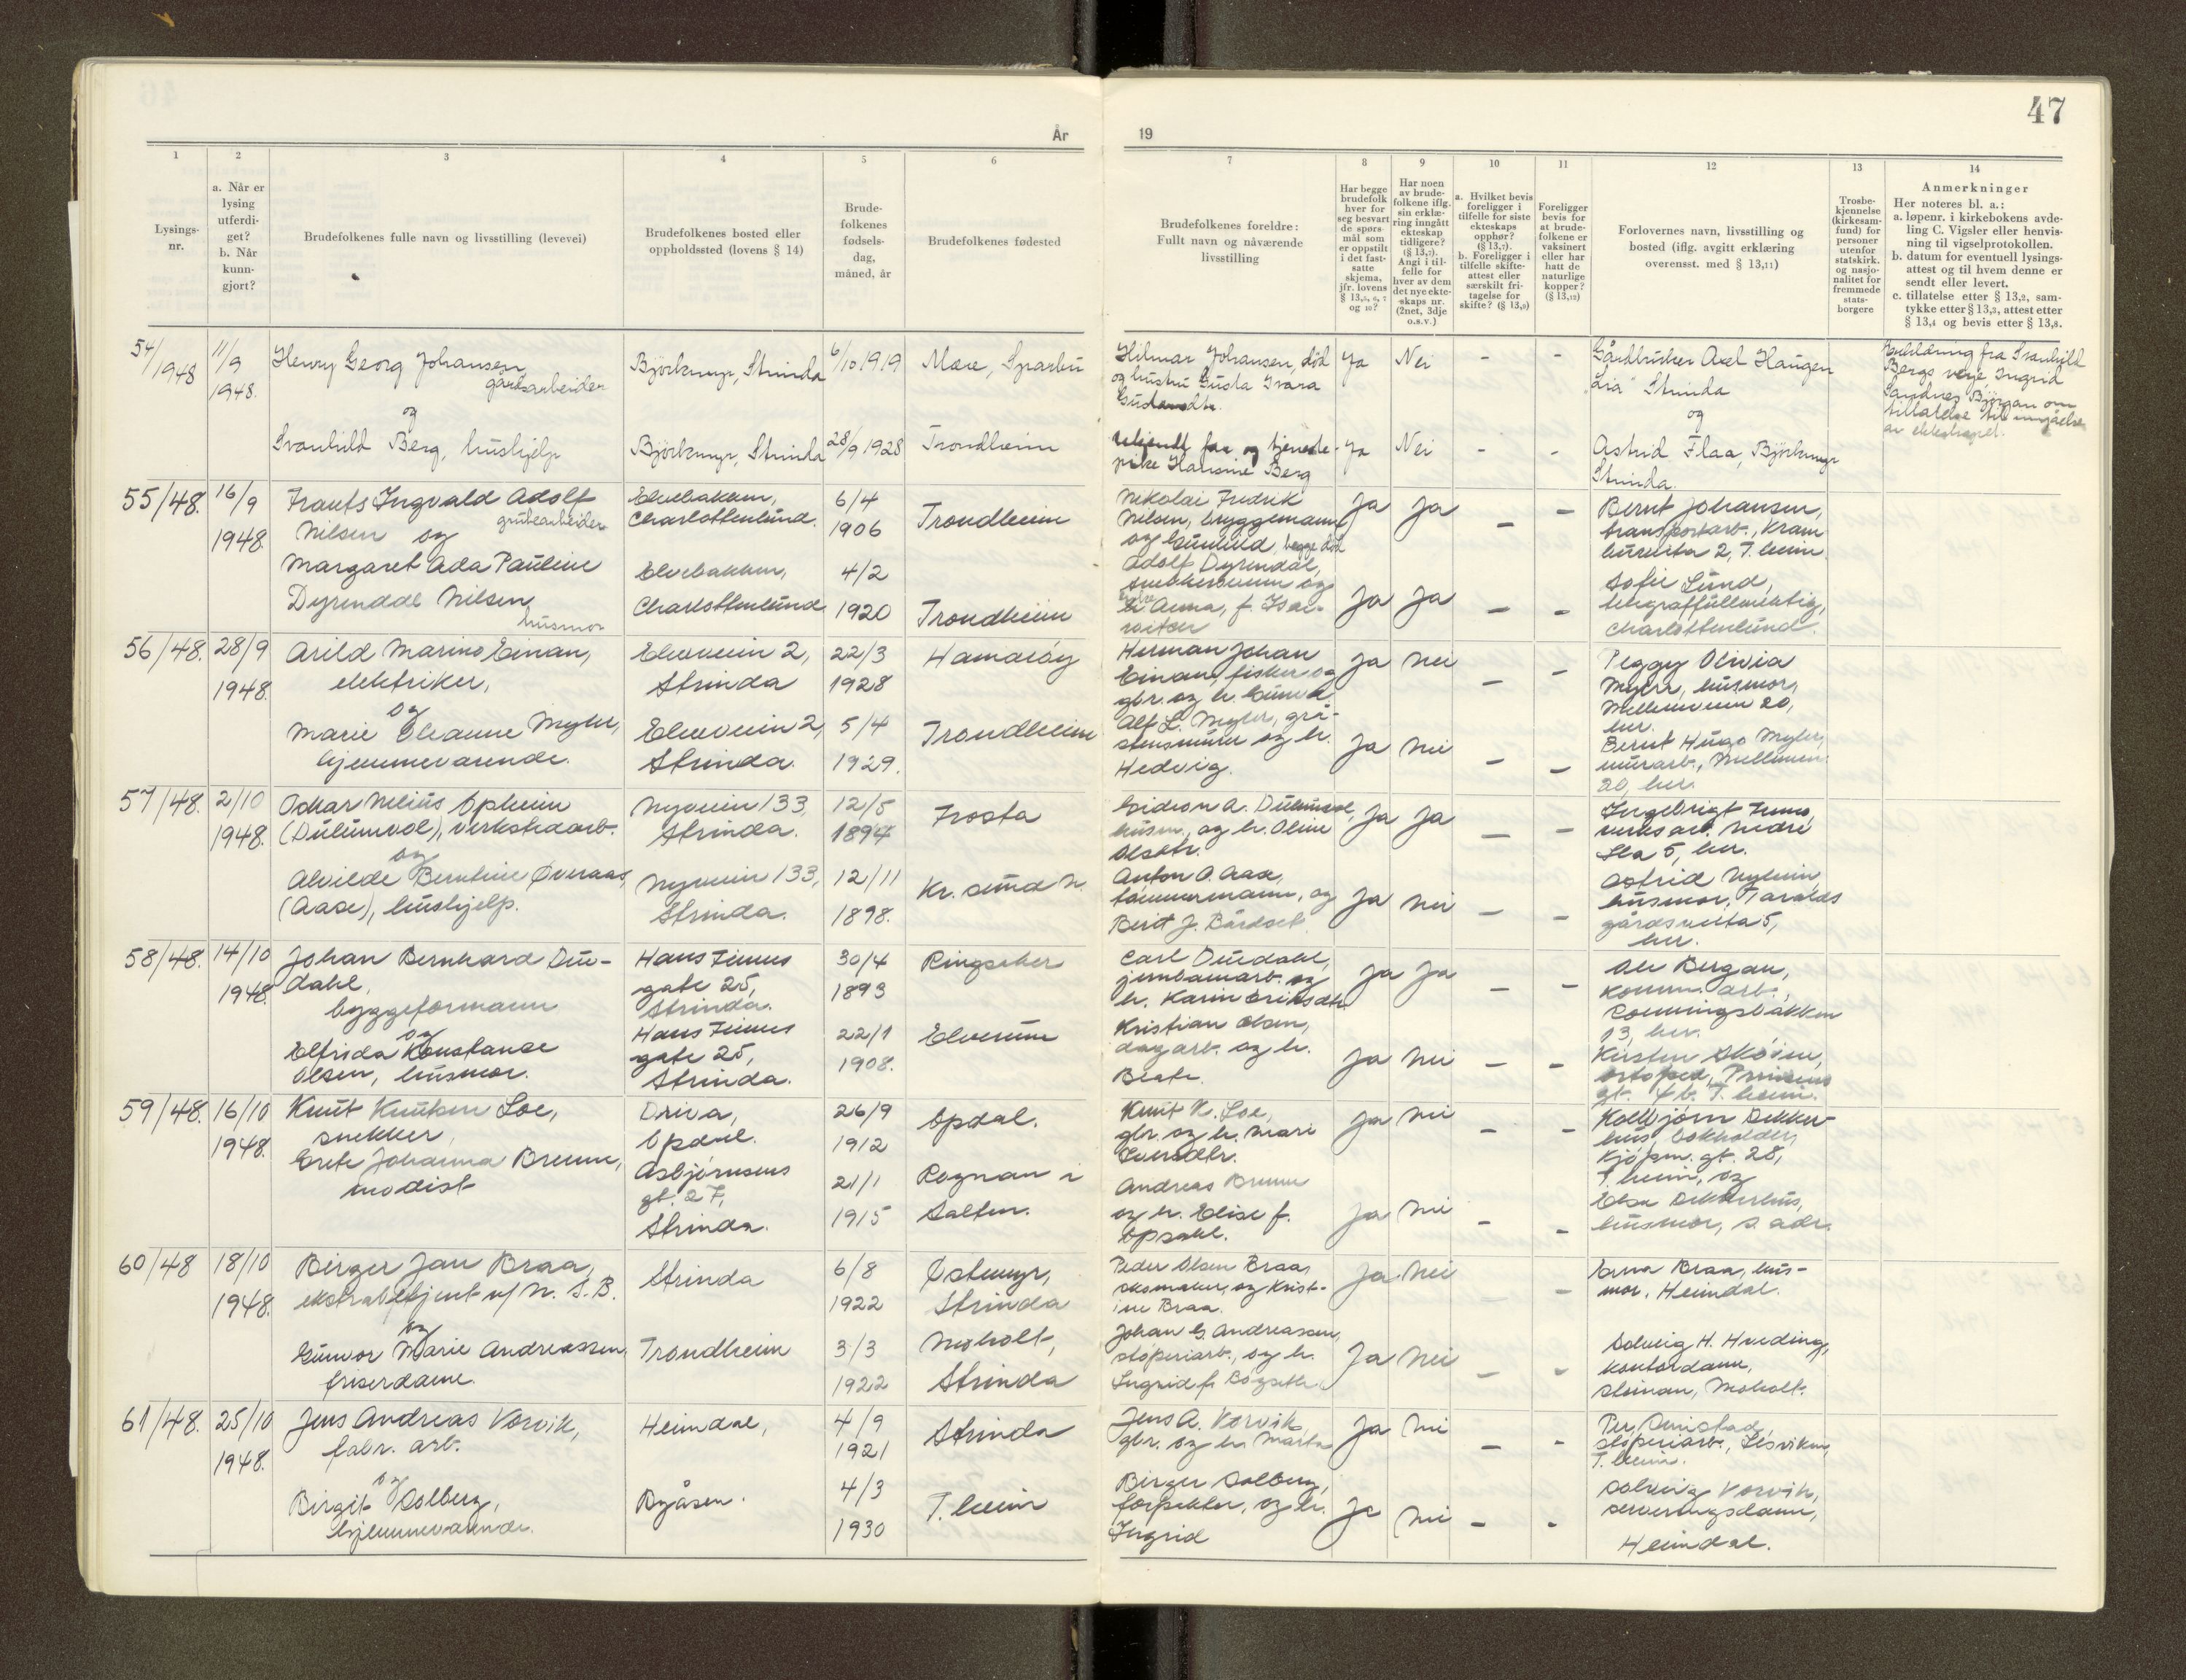 47
År
19
1
2
3
4
5
6
7
8
9
10
11
12
13
14
Lysings-
nr.
a. Når er
lysing
utferdi-
get?
b. Når
kunn-
gjort?
Brudefolkenes fulle navn og livsstilling (levevei)
Brudefolkenes bosted eller
oppholdssted (lovens § 14)
Brude-
folkenes
fødsels-
dag,
måned, år
Brudefolkenes fødested
Brudefolkenes foreldre:
Fullt navn og nåværende
livsstilling
Har begge
brudefolk
hver for
seg besvart
de spørs-
mål som
er oppstilt
i det fast-
satte
skjema,
jfr. lovens
§ 13,5, 6, 7
og 10?
Har noen
av brude-
folkene iflg.
sin erklæ-
ring inngått
ekteskap
tidligere?
(§ 13,7).
Angi i til-
felle for
hver av dem
det nye ekte-
skaps nr.
(2net, 3dje
o.s.v.)
a. Hvilket bevis
foreligger i
tilfelle for siste
ekteskaps
opphør?
(§ 13,7).
b. Foreligger i
tilfelle skifte-
attest eller
særskilt fri-
tagelse for
skifte? (§ 13,9)
Foreligger
bevis for
at brude-
folkene er
vaksinert
eller har
hatt de
naturlige
kopper?
(§ 13,12)
Forlovernes navn, livsstilling og
bosted (iflg. avgitt erklæring
overensst. med § 13,11)
Trosbe-
kjennelse
(kirkesam-
fund) for
personer
utenfor
statskirk.
og nasjo-
nalitet for
fremmede
stats-
borgere
Anmerkninger
Her noteres bl. a.:
a. løpenr. i kirkebokens avde-
ling C. Vigsler eller henvis-
ning til vigselprotokollen.
b. datum for eventuell lysings-
attest og til hvem denne er
sendt eller levert.
c. tillatelse etter § 13,2, sam-
tykke etter § 13,3, attest etter
§ 13,4 og bevis etter § 13,8.
54/1948
11/9
1948.
Henry Georg Johansen,
gårdsarbeider
og
Svanhild Berg, hushjelp
Björkmyr, Strinda
Björkmyr, Strinda
6/10 1919
28/9 1928
Mære, Sparbu
Trondheim
Hilmar Johansen, död
og hustru Gusta Ivara
ukjendt far og tjeneste-
pike Hansine Berg
Ja Nei - -
Ja Nei - -
Gårdbruker Axel Haugen
"Lia" Strinda
og
Astrid Flaa, Björkmyr
Strinda.
Erklæring fra Svanhild
Bergs verje, Ingrid
Sandnes Björgan om
tillatelse til inngåelse
av ekteskapet.
55/48.
16/9
1948.
Frants Ingvald Adolf
grubearbeider
Nilsen og
Margaret Ada Pauline
Dyrendal Nilsen,
husmor
Elvebakken,
Charlottenlund.
Elvebakken,
Charlottenlund
6/4
1906
4/2
1920
Trondheim
Trondheim
Nikolai Fredrik
Nilsen, bryggemann
og Gunhild, begge död
Adolf Dyrendal,
Anna, f. Isak-
Ja Ja - -
Ja Ja - -
Bernt Johansen,
transportarb., Kram-
buveita 2, T.heim.
Sofie Lund,
telegraffullmektig,
Charlottenlund.
56/48.
28/9
1948.
Arild Marino Einan,
elektriker,
og
Marie Oleanne Myhr,
hjemmeværende.
Elveveien 2,
Strinda
Elveveien 2,
Strinda.
22/3
1928
5/4
1929.
Hamaröy
Trondheim
Herman Johan
Einan, fisker og
gbr. og h. Gunda
Alf L. Myhr, grå-
stensmurer og h.
Hedvig.
Ja Nei - -
Ja Nei - -
Peggy Olivia
Myhr, husmor,
Mellemveien 20,
her.
Bernt Hugo Myhr,
murarb., Mellemvn.
20, her.
57/48.
2/10
1948.
Oskar Nelius Opheim
(Dulumvol), verkstedarb.
og
Alvilde Berntine Øveraas,
(Aase), hushjelp.
Nyveien 133,
Strinda.
Nyveien 133,
Strinda.
12/5
1894
12/11
1898.
Frosta
Kr. sund N.
Gideon A. Dulumvol,
husm., og h. Oline
Olsdtr.
Anton O. Aase,
tömmermann, og
Berit J. Bårdset
Ja Ja - -
Ja Nei - -
Ingebrigt
verksarb. Nedre
Ila 5, her.
Astrid Nyheim
husmor, Taralds
gårdsveita 5,
her.
58/48.
14/10
1948.
Johan Bernhard Due-
dahl,
byggeformann
og
Elfrida Konstanse
Olsen, husmor.
Hans Finnes
gate 25,
Strinda.
Hans Finnes
gate 25,
Strinda.
30/4
1893
22/1
1908.
Ringsaker
Elverum
Carl Duedahl,
jernbanearb. og
h. Karin Eriksdtr.
Kristian Olsen,
dagarb. og h.
Beate.
Ja Ja - -
Ja Nei - -
Ole Bergan,
komm. arb.,
Rönningsbakken
13, her.
Kirsten Sköien,
ortoped, Prinsens
gt. 4 b. T.heim.
59/48.
16/10
1948.
Knut Knutsen Loe,
snekker,
Grete Johanna Bremu,
modist
Driva,
Opdal.
Asbjörnsens
gt. 27,
Strinda.
26/9
1912
21/1
1915
Opdal.
Rognan i
Salten.
Knut K. Loe,
gbr. og h. Mari
Iversdtr.
Andreas Bremu
og h. Elise f.
Opsahl.
Ja Nei - -
Ja Nei - -
Kolbjörn Dekker-
hus, bokholder,
Kjöpm. gt. 28,
T.heim, og
Elsa Dekkerhus,
husmor, s. adr.
60/48
18/10
1948.
Birger Jan Braa,
ekstrabetjent v/ N. S. B.
og
Gunvor Marie Andreassen,
friserdame.
Strinda
Trondheim
6/8
1922
3/3
1922
Østmyr,
Strinda
Moholt,
Strinda
Peder Olsen Braa,
skomaker, og Krist-
ine Braa.
Johan G. Andreassen,
stöperiarb., og h.
Ingrid f.
Ja Nei -
Ja Nei - -
Erna Braa, hus-
mor. Heimdal.
Solveig H. Hveding,
kontordame,
Steinan, Moholt.
61/48.
25/10
1948.
Jens Andreas Vorvik,
fabr. arb.
og
Birgit Solberg,
hjemmeværende.
Heimdal,
Byåsen.
4/9
1921
4/3
1930
Strinda
T.heim
Jens A. Vorvik,
gbr. og h. Marta
Birger Solberg,
forpakter, og h.
Ingrid
Ja Nei - -
Ja Nei - -
Per
stöperiarb., Ilsviken,
T.heim.
Solveig Vorvik,
serveringsdame,
Heimdal.